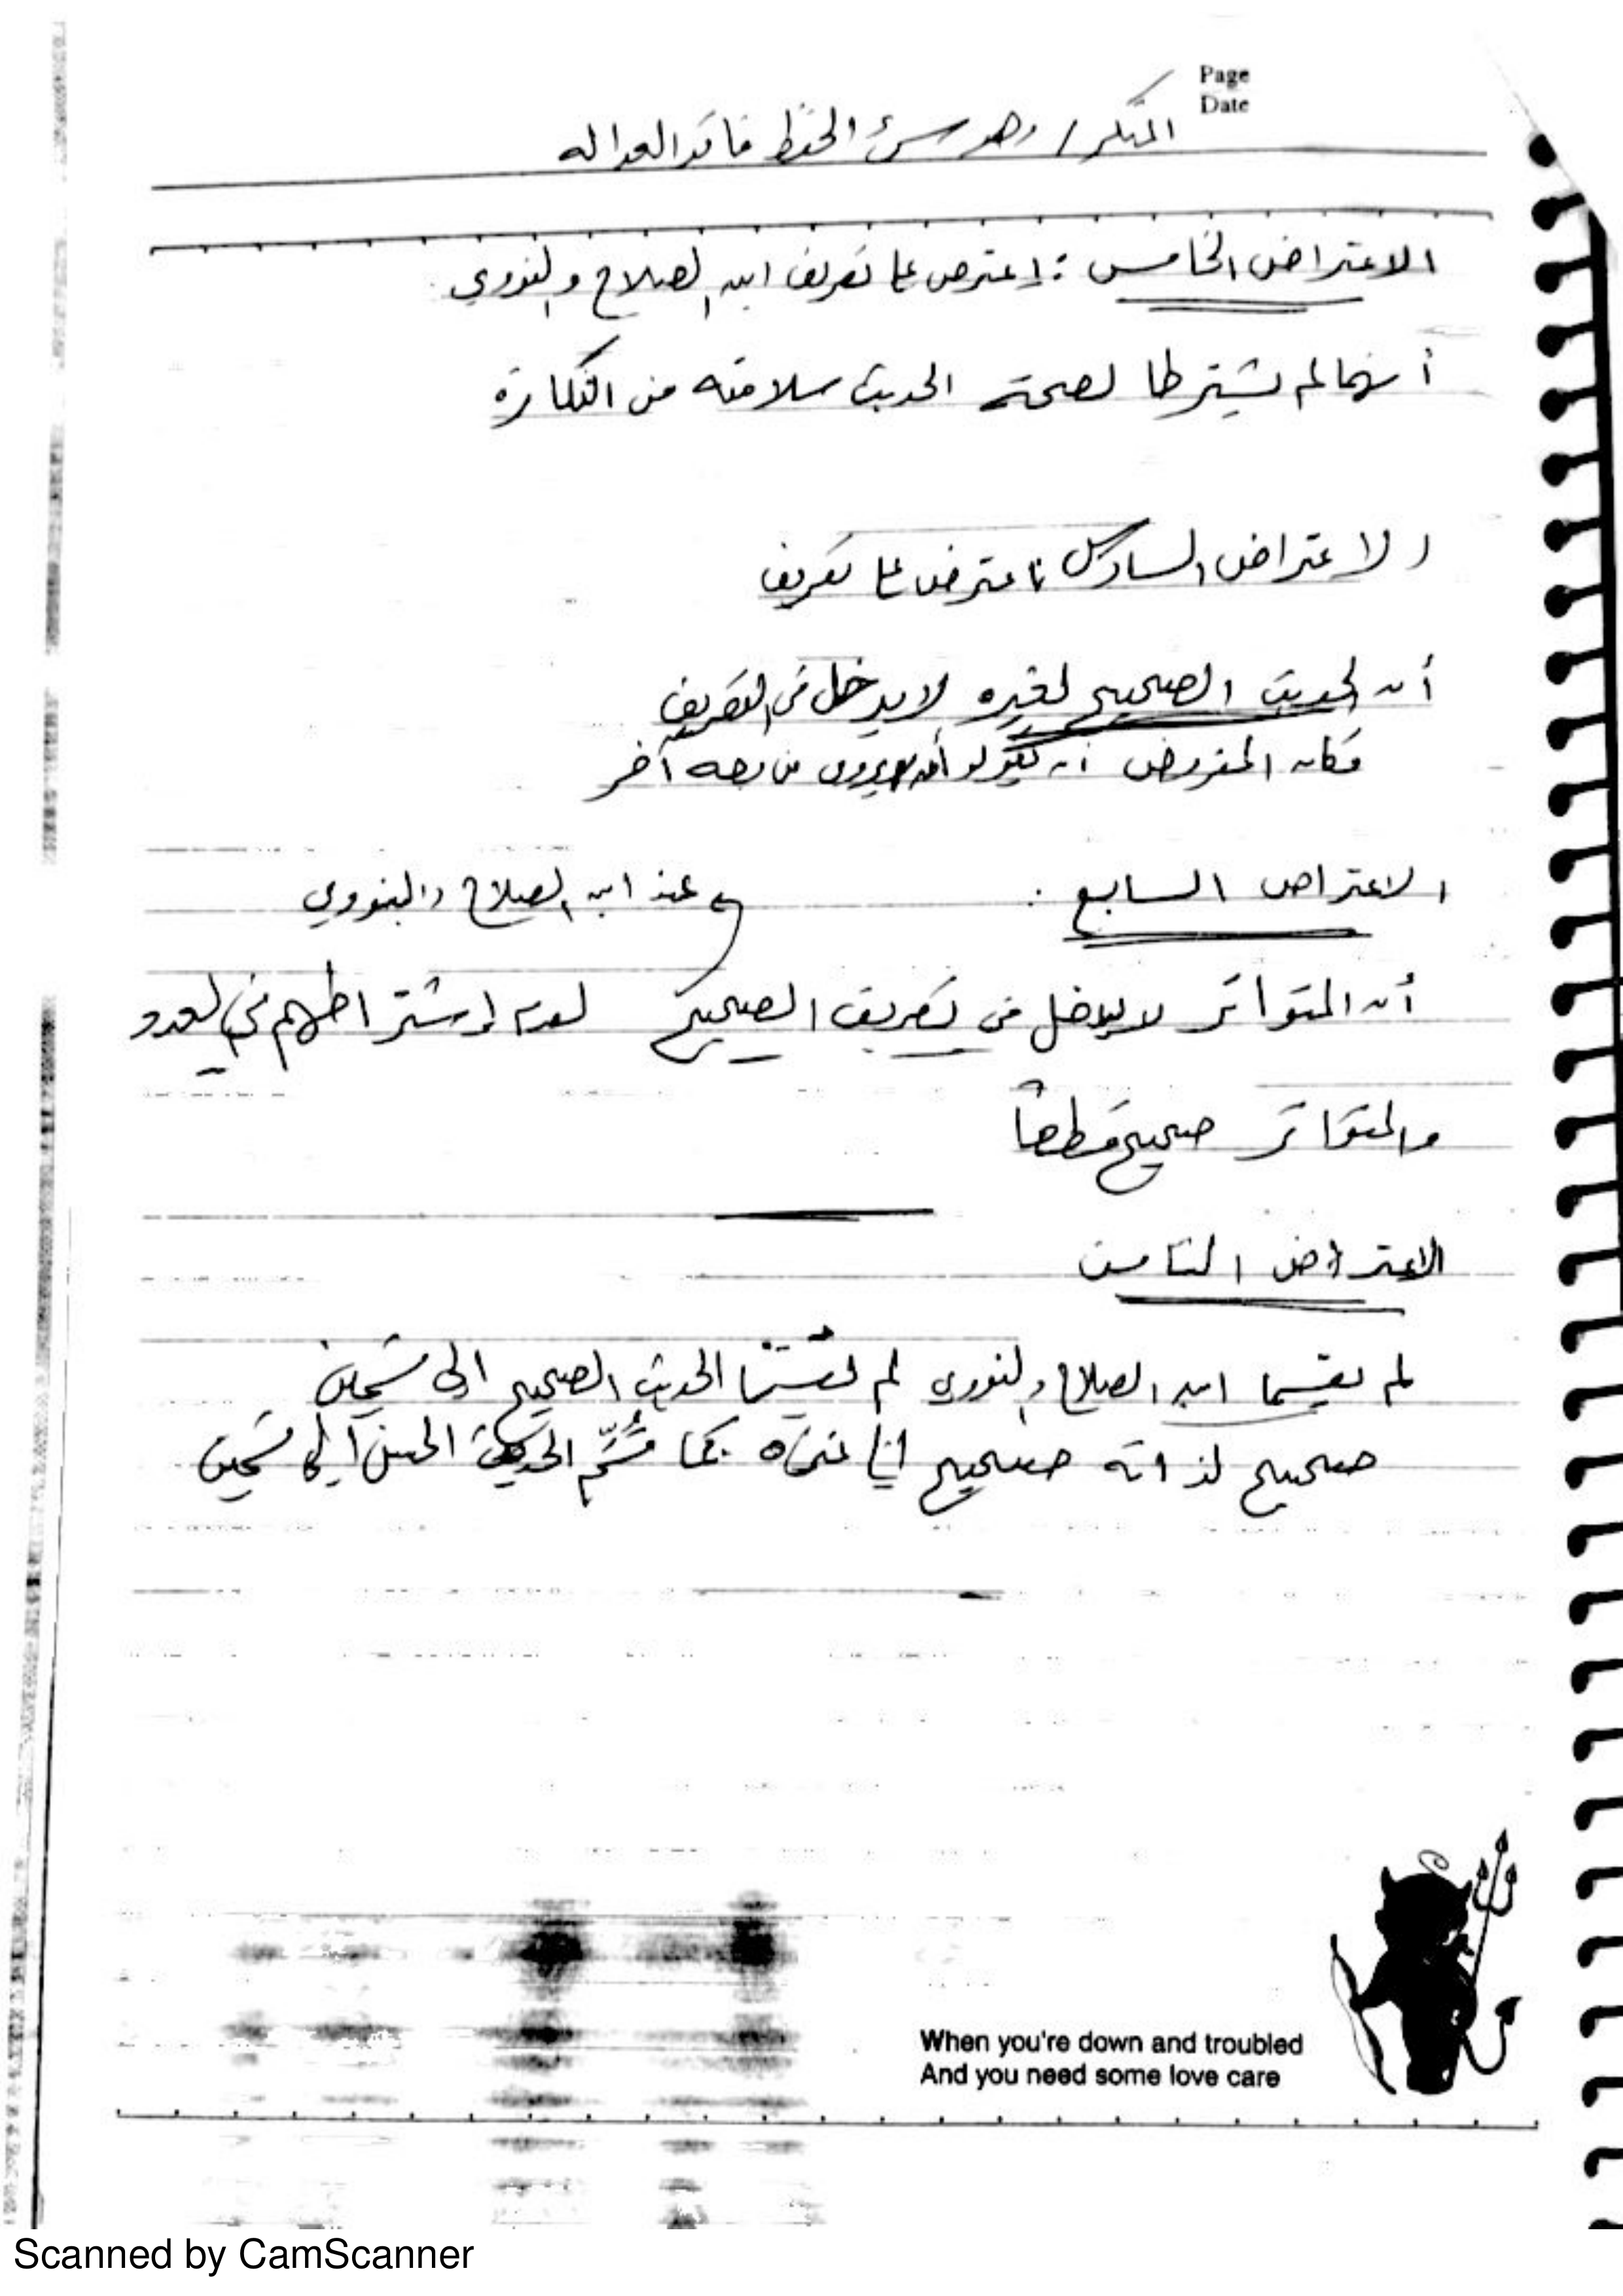 Page
Date
المنكر / وهو سئ الحفظ فاقد العداله
الاعتراض الخامس : إعترض على تعريف ابن الصلاح والنووي
أنهما لم يشترطا لصحة الحديث سلامته من النكارة
الاعتراض السادس : اعترض على تعريف
أن الحديث الصحيح لغيره لا يدخل في التعريف
فكان المفروض أن يقولو أو يروى من وجه آخر
الاعتراض السابع :
عند ابن الصلاح والنووي
أن المتواتر لا يدخل في تعريف الصحيح لعدم إشتراطهم في العدد
والمتواتر صحيح قطعاً
الاعتراض الثامن
لم يقسما ابن الصلاح والنووي لم يقسما الحديث الصحيح الى قسمين
صحيح لذاته صحيح لغيره كما قُسِّم الحديث الحسن إلى قسمين
When you're down and troubled
And you need some love care
Scanned by CamScanner